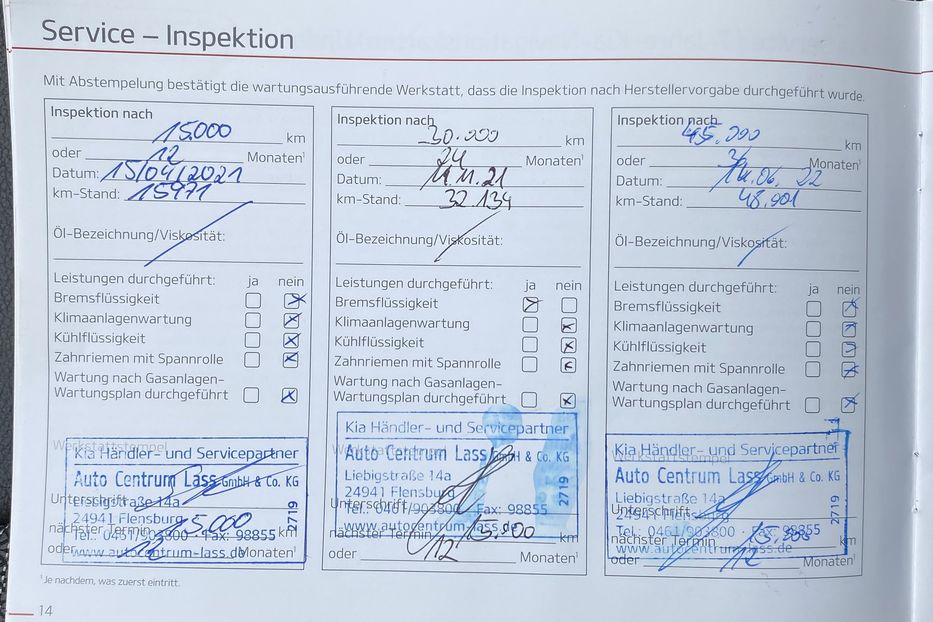 Service – Inspektion
Mit Abstempelung bestätigt die wartungsausführende Werkstatt, dass die Inspektion nach Herstellervorgabe durchgeführt wurde.
Inspektion nach
15.000 km
oder 12 Monaten¹
Datum: 15/04/2021
km-Stand: 15971
Öl-Bezeichnung/Viskosität:
Leistungen durchgeführt: ja nein
Bremsflüssigkeit
Klimaanlagenwartung
Kühlflüssigkeit
Zahnriemen mit Spannrolle
Wartung nach Gasanlagen-
Wartungsplan durchgeführt
Werkstattstempel
Kia Händler- und Servicepartner
Auto Centrum Lass GmbH & Co. KG
Liebigstraße 14a
Unterschrift
24941 Flensburg
2719
nächster Termin 15.000 km
Tel.: 0461/903800 Fax: 98855
www.autocentrum-lass.de
oder 12 Monaten¹
Inspektion nach
30.000 km
oder 24 Monaten¹
Datum: 19.11.21
km-Stand: 32.134
Öl-Bezeichnung/Viskosität:
Leistungen durchgeführt: ja nein
Bremsflüssigkeit
Klimaanlagenwartung
Kühlflüssigkeit
Zahnriemen mit Spannrolle
Wartung nach Gasanlagen-
Wartungsplan durchgeführt
Kia Händler- und Servicepartner
Auto Centrum Lass GmbH & Co. KG
Liebigstraße 14a
24941 Flensburg
2719
Unterschrift
Tel.: 0461/903800 Fax: 98855
www.autocentrum-lass.de
nächster Termin 15.000 km
oder 12 Monaten¹
Inspektion nach
45.000 km
oder 36 Monaten¹
Datum: 14.06.22
km-Stand: 48.901
Öl-Bezeichnung/Viskosität:
Leistungen durchgeführt: ja nein
Bremsflüssigkeit
Klimaanlagenwartung
Kühlflüssigkeit
Zahnriemen mit Spannrolle
Wartung nach Gasanlagen-
Wartungsplan durchgeführt
Kia Händler- und Servicepartner
Werkstattstempel
Auto Centrum Lass GmbH & Co. KG
Liebigstraße 14a
Unterschrift
24941 Flensburg
2719
Tel.: 0461/903800 Fax: 98855
nächster Termin 15.000 km
www.autocentrum-lass.de
oder 12 Monaten¹
¹Je nachdem, was zuerst eintritt.
14